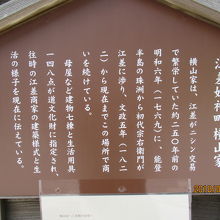 江差姥神町横山家
横山家は、江差がニシン交易
で繁栄していた約二五〇年前の
明和六年（一七六九）に、能登
半島の珠洲から初代宗右衛門が
江差に渉り、文政五年（一八二
二）から現在までこの場所で商
いを続けている。
母屋など建物七棟と生活用具
一四八点が道文化財に指定され、
往時の江差商家の建築様式と生
活の様子を現在に伝えている。